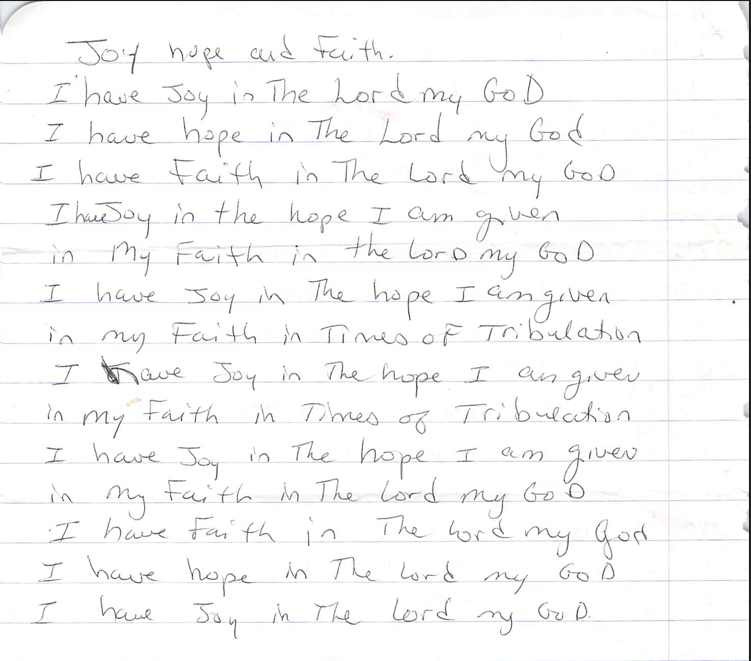 Joy hope and Faith.
I have Joy in The Lord my GoD
I have hope in The Lord my God
I have Faith in The Lord my GoD
I have Joy in the hope I am given
in My Faith in the LorD my GoD
I have Joy in The hope I am given
in my Faith in Times of Tribulation
I have Joy in The hope I am given
in my Faith in Times of Tribulation
I have Joy in The hope I am given
in my Faith in The Lord my GoD
I have Faith in The Lord my God
I have hope in The Lord my GoD
I have Joy in The Lord my GoD.